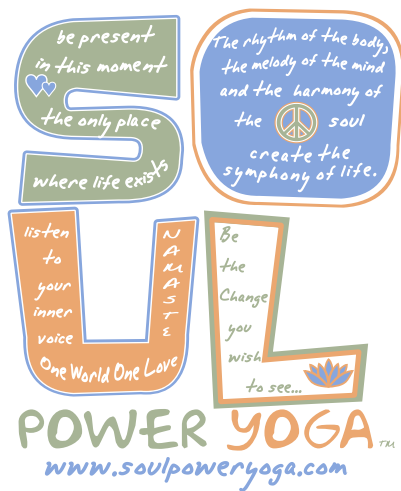 be present
in this moment
the only place
where life exists
The rhythm of the body,
the melody of the mind
and the harmony of
the soul
create the
symphony of life.
listen
to
your
inner
voice
NAMASTE
One World One Love
Be
the
Change
you
wish
to see...
POWER YOGA™
www.soulpoweryoga.com